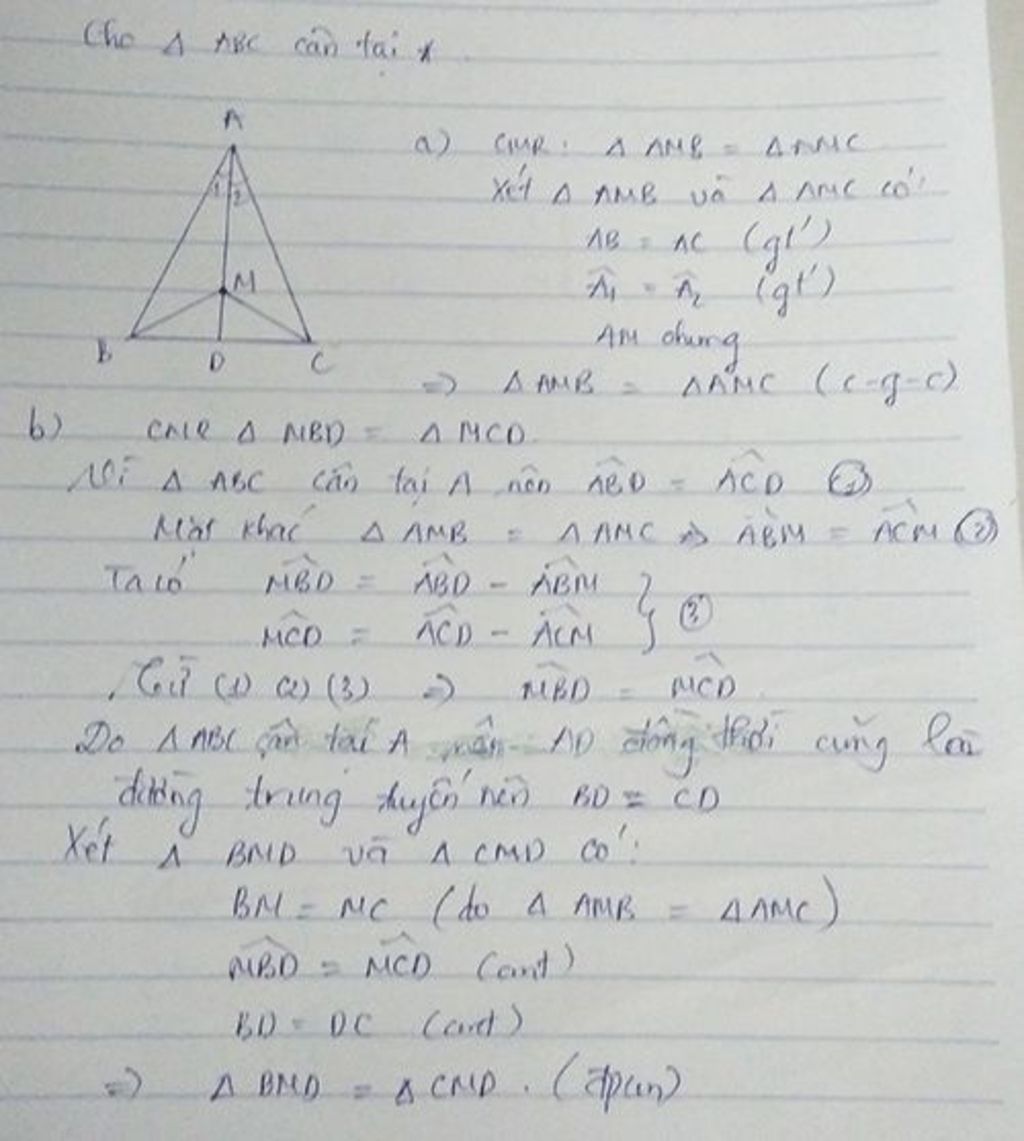 Cho Δ ABC cân tại A
A
1 2
M
B D C
a) CMR: Δ AMB = Δ AMC
Xét Δ AMB và Δ AMC có:
AB = AC (gt)
Â₁ = Â₂ (gt)
AM chung
=> Δ AMB = Δ AMC (c-g-c)
b) CMR Δ MBD = Δ MCD
Vì Δ ABC cân tại A nên ABD̂ = ACD̂ (1)
Mặt khác Δ AMB = Δ AMC => ABM̂ = ACM̂ (2)
Ta có MBD̂ = ABD̂ - ABM̂
MCD̂ = ACD̂ - ACM̂ } (3)
Từ (1) (2) (3) => MBD̂ = MCD̂
Do Δ ABC cân tại A nên AD đồng thời cũng là
đường trung tuyến nên BD = CD
Xét Δ BMD và Δ CMD có:
BM = MC (do Δ AMB = Δ AMC)
MBD̂ = MCD̂ (cmt)
BD = DC (cmt)
=> Δ BMD = Δ CMD. (đpcm)